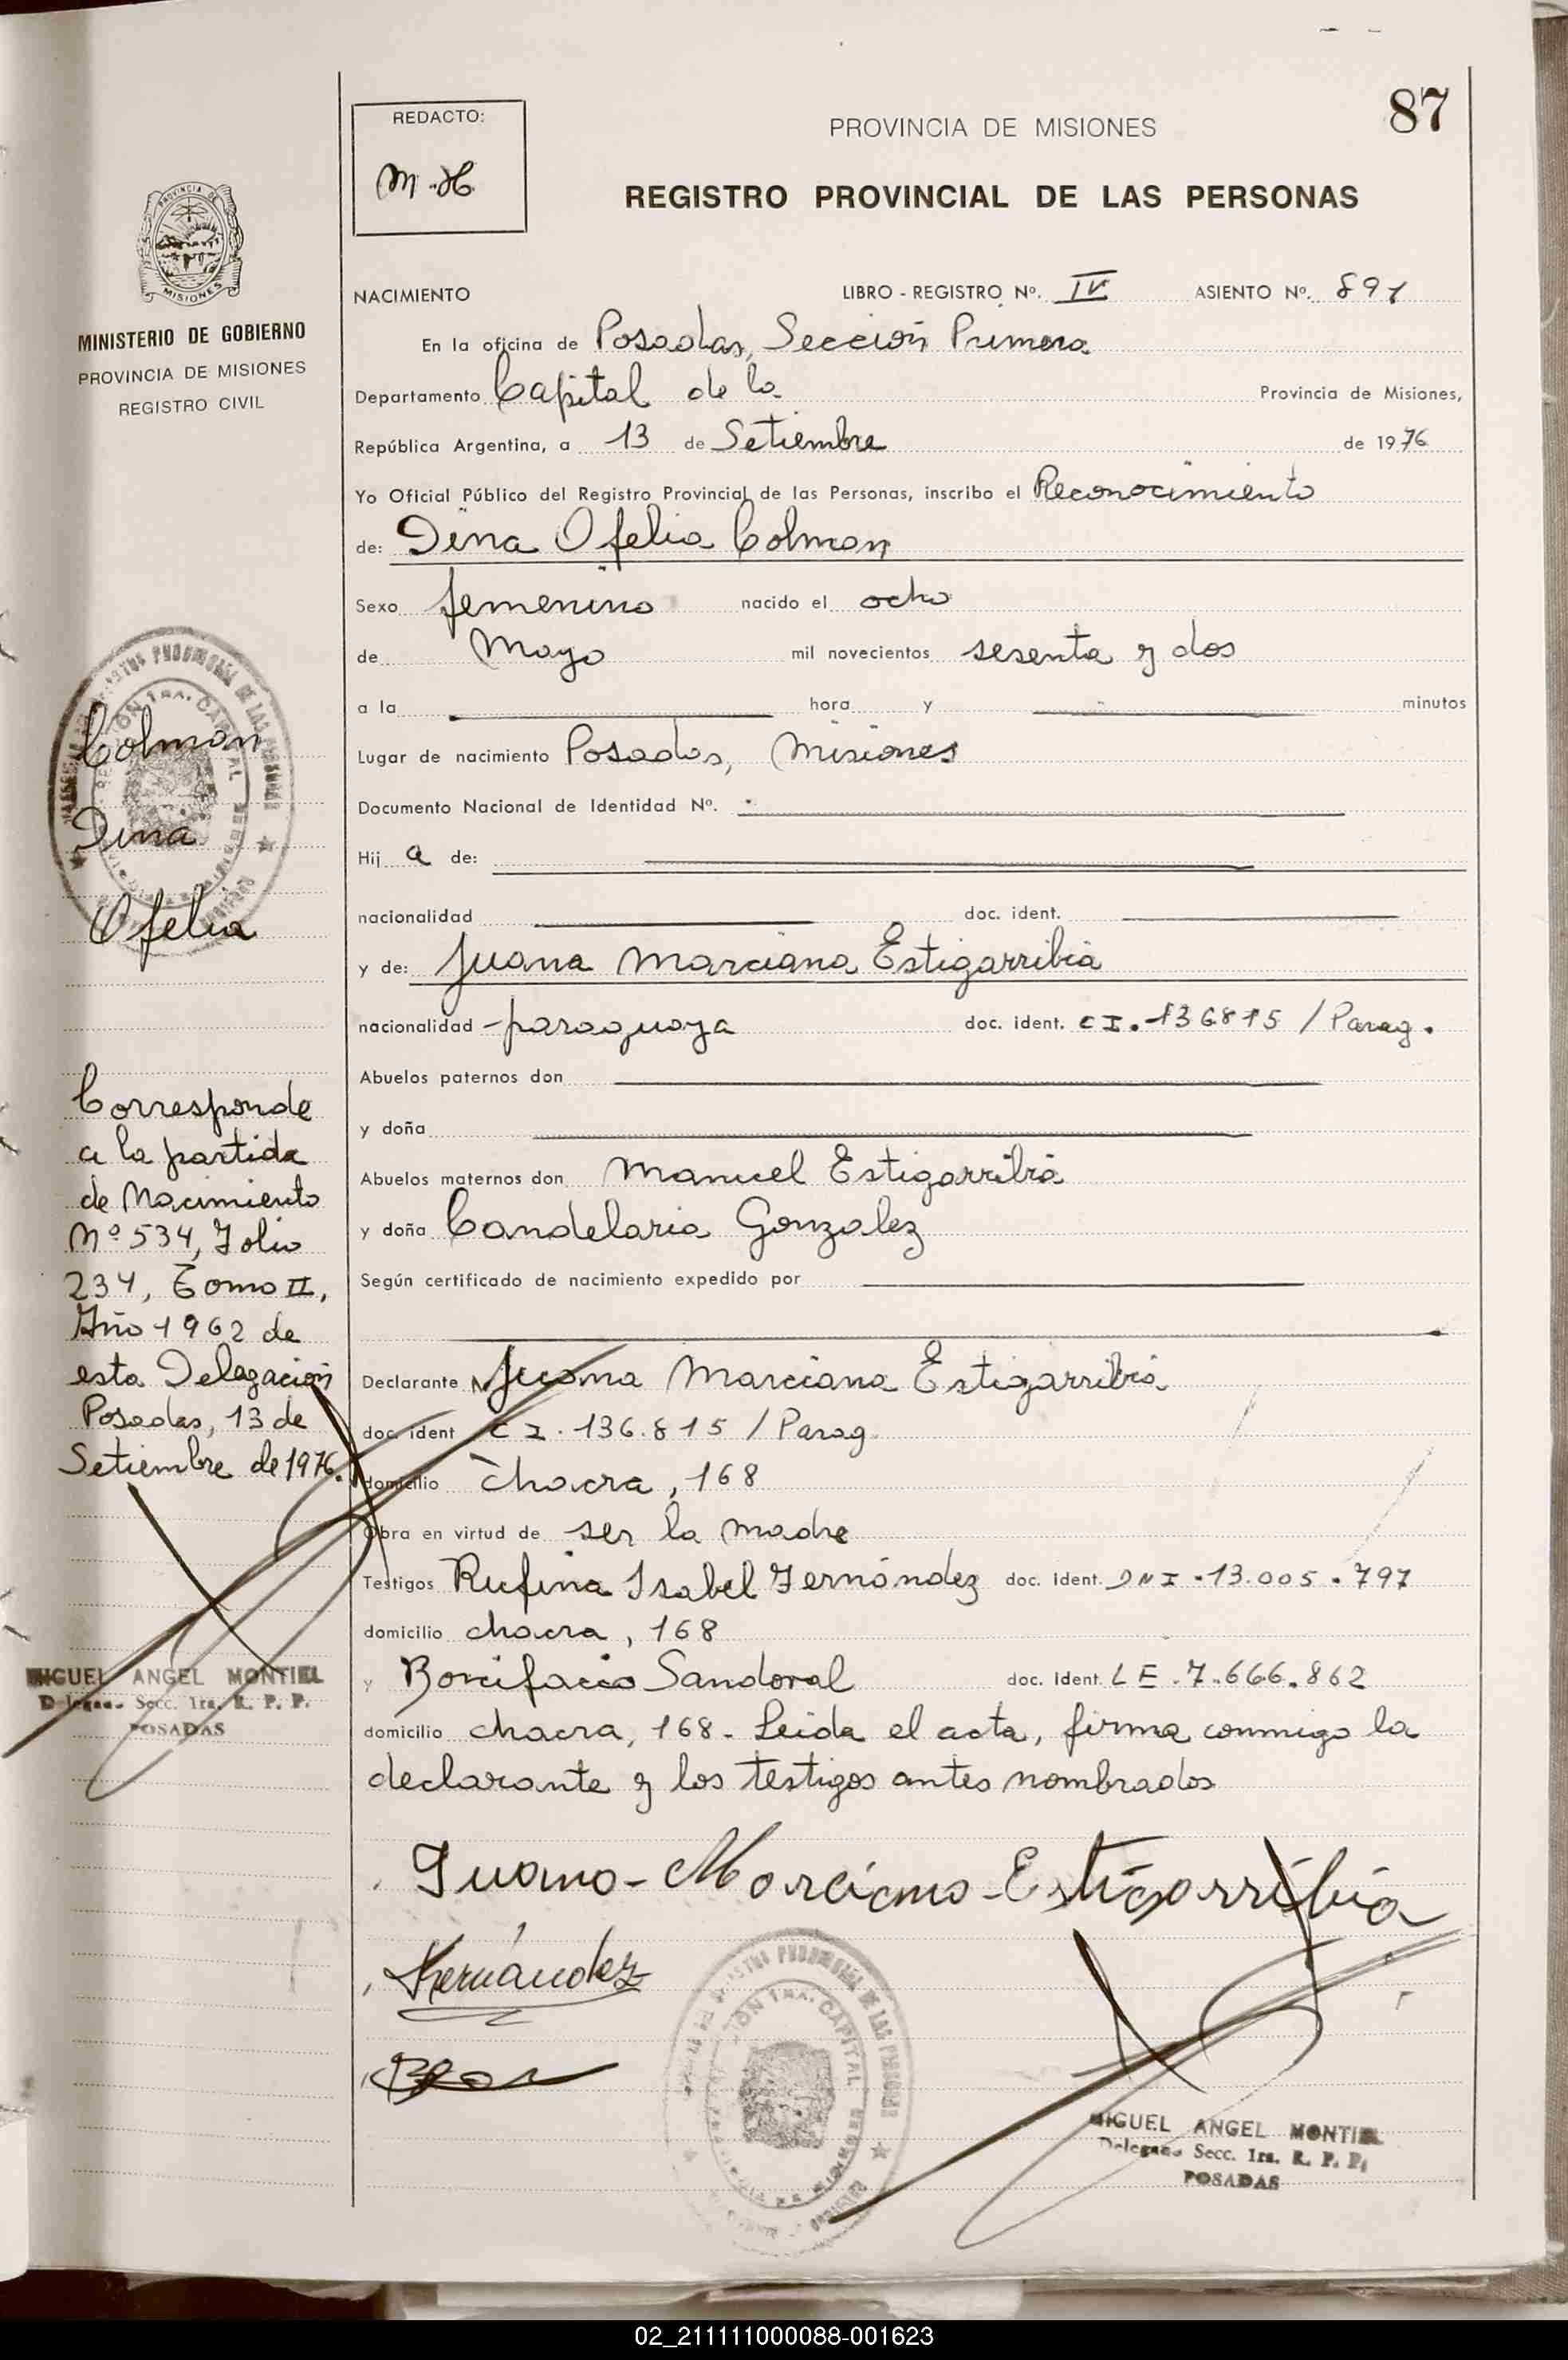 87
REDACTO:
M.H
PROVINCIA DE MISIONES
REGISTRO PROVINCIAL DE LAS PERSONAS
MISIONES
MINISTERIO DE GOBIERNO
PROVINCIA DE MISIONES
REGISTRO CIVIL
Colman
Dina
Ofelia
Corresponde
a la partida
de Nacimiento
Nº 534, Folio
234, Tomo II,
Año 1962 de
esta Delegación
Posadas, 13 de
Setiembre de 1976.
MIGUEL ANGEL MONTIEL
Delegado Secc. 1ra. R. P. P.
POSADAS
NACIMIENTO LIBRO - REGISTRO Nº. IV ASIENTO Nº. 891
En la oficina de Posadas, Sección Primera
Departamento Capital de la Provincia de Misiones,
República Argentina, a 13 de Setiembre de 1976
Yo Oficial Público del Registro Provincial de las Personas, inscribo el Reconocimiento
de: Dina Ofelia Colman
Sexo femenino nacido el ocho
de Mayo mil novecientos sesenta y dos
a la hora y minutos
Lugar de nacimiento Posadas, Misiones
Documento Nacional de Identidad Nº.
Hij a de:
nacionalidad doc. ident.
y de: Juana Marciana Estigarribia
nacionalidad paraguaya doc. ident. CI. 136815 / Parag.
Abuelos paternos don
y doña
Abuelos maternos don Manuel Estigarribia
y doña Candelaria Gonzalez
Según certificado de nacimiento expedido por
Declarante Juana Marciana Estigarribia
doc. ident CI. 136.815 / Parag.
domicilio chacra, 168
Obra en virtud de ser la madre
Testigos Rufina Isabel Fernández doc. ident. DNI. 13.005.797
domicilio chacra, 168
y Bonifacio Sandoval doc. ident. LE. 7.666.862
domicilio chacra, 168- Leida el acta, firma conmigo la
declarante y los testigos antes nombrados
Juana - Marciana - Estigarribia
Fernández
MIGUEL ANGEL MONTIEL
Delegado Secc. 1ra. R. P. P.
POSADAS
02_211111000088-001623